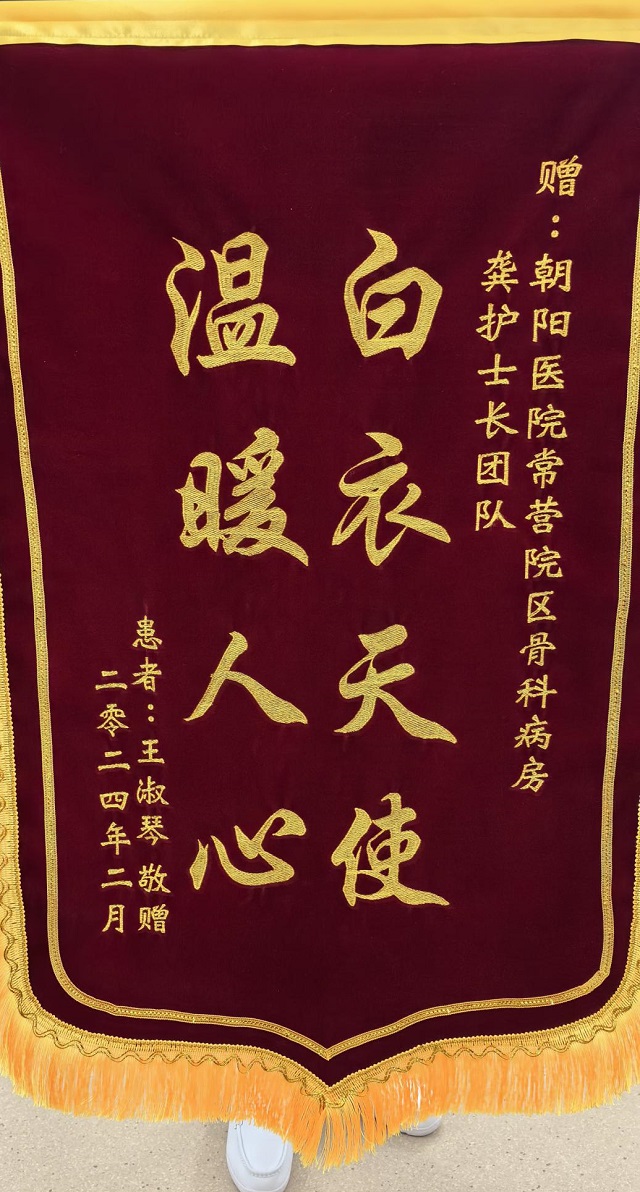 赠：朝阳医院常营院区骨科病房
龚护士长团队
白衣天使
温暖人心
患者：王淑琴 敬赠
二零二四年二月